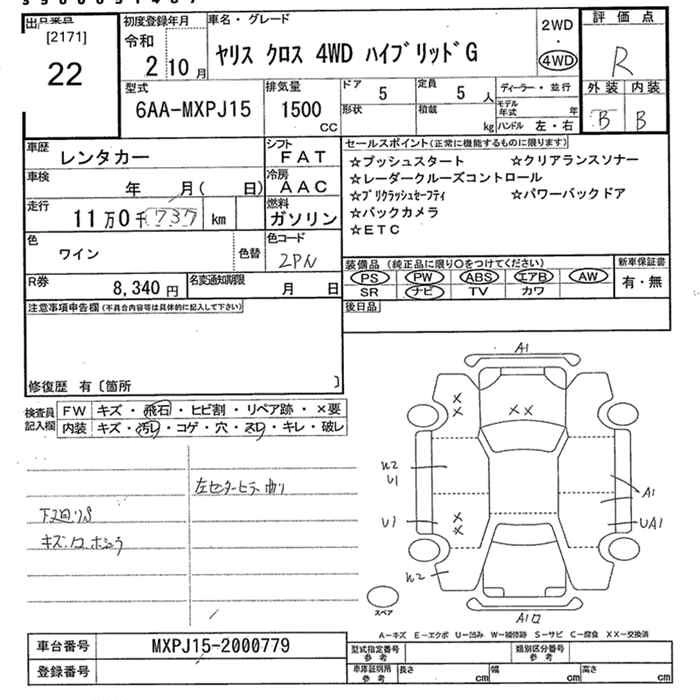 [2171]
22
初度登録年月
令和
2年10月
車名・グレード
ヤリス クロス 4WD ハイブリッドG
2WD
・
4WD
評価点
R
外装 内装
B B
型式
6AA-MXPJ15
排気量
1500
CC
ドア
5
形状
定員
5人
積載
kg
ディーラー・並行
モデル年式 年
ハンドル 左・右
車歴
レンタカー
シフト
FAT
車検
年 月( 日)
冷房
AAC
走行
11万0千737 km
燃料
ガソリン
色
ワイン
色替
色コード
2PN
R券
8,340円
名変通知期限
月 日
セールスポイント(正常に機能するものに限ります)
☆プッシュスタート ☆クリアランスソナー
☆レーダークルーズコントロール
☆プリクラッシュセーフティ ☆パワーバックドア
☆バックカメラ
☆ETC
装備品(純正品に限り○をつけてください)
PS PW ABS エアB AW
SR ナビ TV カワ
新車保証書
有・無
後日品
注意事項申告欄(不具合内容等は具体的に記入して下さい)
修復歴 有〔箇所 〕
検査員
記入欄
FW キズ・飛石・ヒビ割・リペア跡・×要
内装 キズ・汚レ・コゲ・穴・スレ・キレ・破レ
下廻りS
A1
××
×
×
W2
U1
A1
U1
×
×
UA1
W2
スペア
A1
A-キズ E-エクボ U-凹み W-補修跡 S-サビ C-腐食 XX-交換済
車台番号
MXPJ15-2000779
登録番号
型式指定番号
参考
類別区分番号
参考
車庫証明用
参考
長さ cm
幅 cm
高さ cm